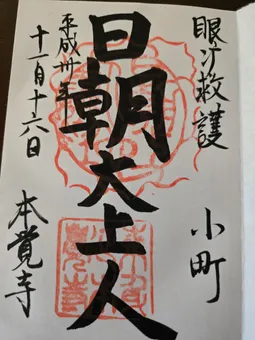 眼疒救護
小町
日朝大上人
平成卅年
十一月十六日
本覺寺